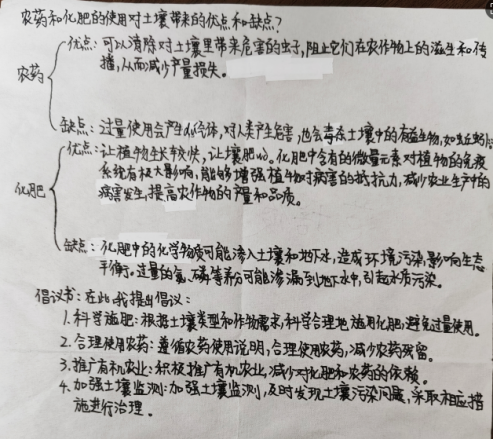 农药和化肥的使用对土壤带来的优点和缺点?
农药
优点:可以清除对土壤里带来危害的虫子,阻止它们在农作物上的滋生和传
播,从而减少产量损失。
缺点:过量使用会产生,对人类产生危害,也会毒杀土壤中的有益生物,如蚯蚓
化肥
优点:让植物生长较快,让土壤肥沃。化肥中含有的微量元素对植物的免疫
系统有极大影响,能够增强植物对病害的抵抗力,减少农业生产中的
病害发生,提高农作物的产量和品质。
缺点:化肥中的化学物质可能渗入土壤和地下水,造成环境污染,影响生态
平衡。过量的氮、磷等养分可能渗漏到地下水中,引起水质污染。
倡议书:在此我提出倡议:
1.科学施肥:根据土壤类型和作物需求,科学合理地施用化肥,避免过量使用。
2.合理使用农药:遵循农药使用说明,合理使用农药,减少农药残留。
3.推广有机农业:积极推广有机农业,减少对化肥和农药的依赖。
4.加强土壤监测:加强土壤监测,及时发现土壤污染问题,采取相应措
施进行治理。